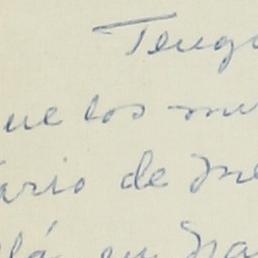 Tengo
que los mu
ario de Me
lá en Na